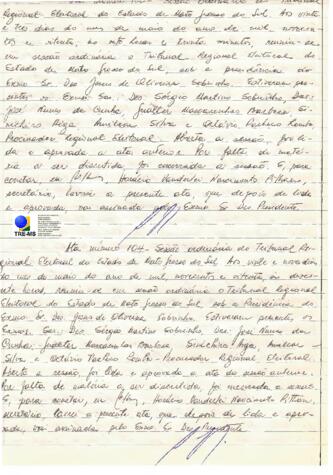 Regional Eleitoral do Estado de Mato Grosso do Sul. Aos vinte
e três dias do mês de maio do ano de mil, novecen-
tos e oitenta, às sete horas e trinta minutos, reuniu-se
em sessão ordinária o Tribunal Regional Eleitoral do
Estado de Mato Grosso do Sul, sob a presidência do
Exmo. Sr. Des. Jesus de Oliveira Sobrinho. Estiveram presen-
tes os Exmos. Srs. Des. Sérgio Martins Sobrinho, Drs.
José Nunes da Cunha,
Silva e Octávio Pacheco
Procurador Regional Eleitoral. Aberta a sessão, foi li-
da e aprovada a ata anterior. Por falta de maté-
ria a ser discutida foi encerrada a sessão. E, para
constar, eu Horácio Vanderlei Nascimento Pithan,
secretário, lavrei a presente ata, que depois de lida
e aprovada, vai assinada pelo Exmo. Sr. Des. Presidente.
TRE-MS
Ata número 104 - Sessão ordinária do Tribunal Re-
gional Eleitoral do Estado de Mato Grosso do Sul. Aos vinte e nove dias
do mês de maio do ano de mil, novecentos e oitenta, às
horas, reuniu-se em sessão ordinária o Tribunal Regional
Eleitoral do Estado de Mato Grosso do Sul, sob a Presidência do
Exmo. Sr. Des. Jesus de Oliveira Sobrinho. Estiveram presentes, os
Exmos. Srs. Des. Sérgio Martins Sobrinho, Drs. José Nunes da
Cunha,
Silva e Octávio Pacheco - Procurador Regional Eleitoral.
Aberta a sessão, foi lida e aprovada a ata da sessão anterior.
Por falta de matéria a ser discutida, foi encerrada a sessão.
E, para constar, eu Horácio Vanderlei Nascimento Pithan,
secretário, lavrei a presente ata, que depois de lida e apro-
vada, vai assinada pelo Exmo. Sr. Des. Presidente.